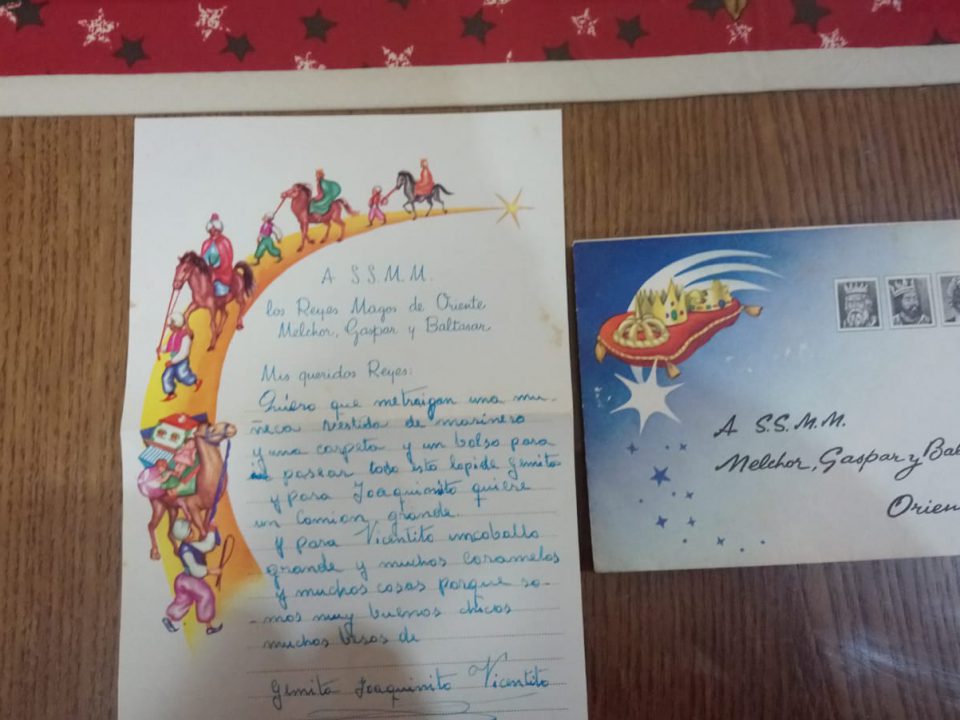 A S.S.M.M.
los Reyes Magos de Oriente
Melchor, Gaspar y Baltasar
Mis queridos Reyes:
Quiero que metraigan una mu-
ñeca vestida de marinero
y una carpeta y un bolso para
pasear todo esto lopide Gemita
y para Joaquinito quiere
un Camion grande.
y para Vicentito uncaballo
grande y muchos caramelos
y muchas cosas porque so-
mos muy buenos chicos
muchos besos de
Gemita Joaquinito Vicentito
A S.S.M.M.
Melchor, Gaspar y Bal
Orien